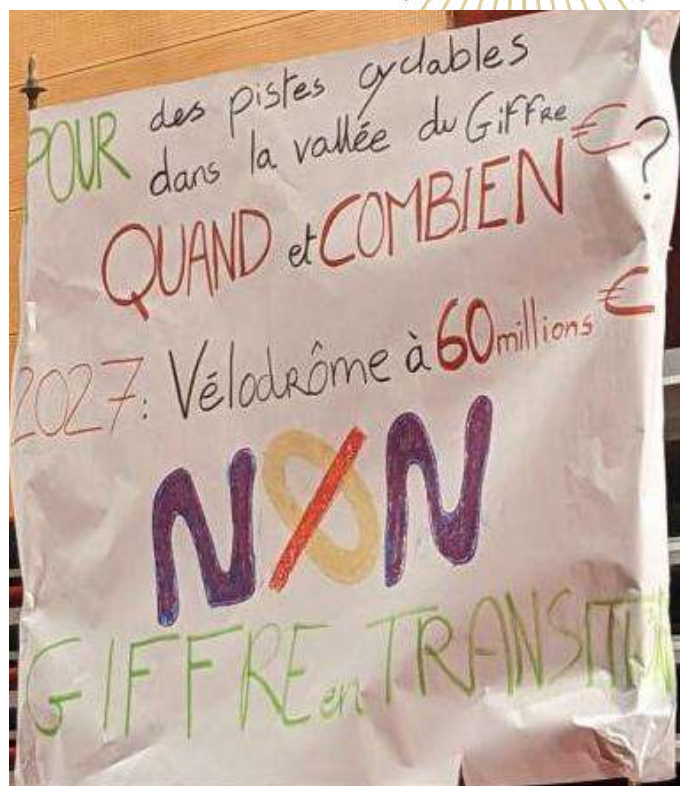 POUR des pistes cyclables
dans la vallée du Giffre
QUAND et COMBIEN € ?
2027: Vélodrôme à 60 millions €
NON
GIFFRE en TRANSITION